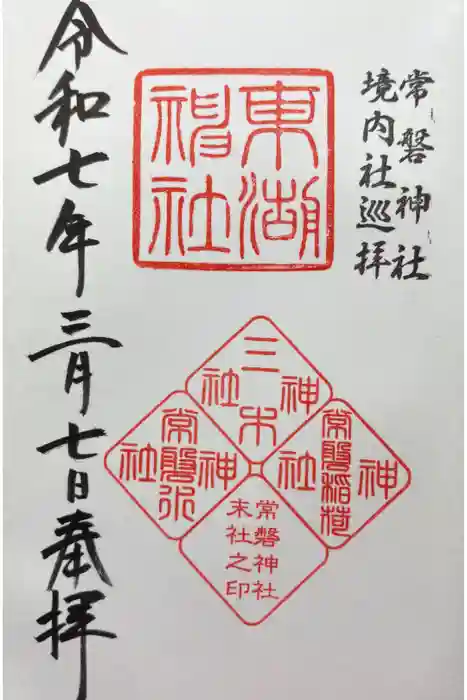 常磐神社
境内社巡拝
東湖
神社
三木神社
常磐稲荷神社
常磐水神社
常磐神社
末社之印
令和七年三月七日奉拝